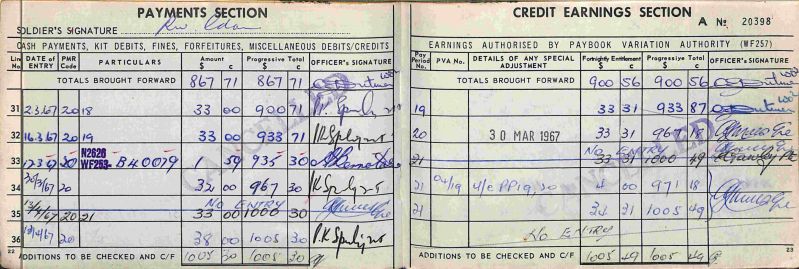 PAYMENTS SECTION
SOLDIER'S SIGNATURE
CASH PAYMENTS, KIT DEBITS, FINES, FORFEITURES, MISCELLANEOUS DEBITS/CREDITS
Line No. DATE of ENTRY PMR Code PARTICULARS Amount $ c Progressive Total $ c OFFICER'S SIGNATURE
TOTALS BROUGHT FORWARD 867 71 867 71
31 2.3.67 20 18 33 00 900 71
32 16.3.67 20 19 33 00 933 71
N2626
33 20 WF253- B40079 1 59 935 30
34 30/3/67 20 32 00 967 30
NO ENTRY
35 13/4/67 20 21 33 00 1000 30
36 13/4/67 20 38 00 1005 30
22 ADDITIONS TO BE CHECKED AND C/F 1005 30 1005 30
CANCELLED
CREDIT EARNINGS SECTION
A No 20398
EARNINGS AUTHORISED BY PAYBOOK VARIATION AUTHORITY (WF257)
Pay Period No. PVA No. DETAILS OF ANY SPECIAL ADJUSTMENT Fortnightly Entitlement $ c Progressive Total $ c OFFICER'S SIGNATURE
TOTALS BROUGHT FORWARD 900 56 900 56
19 33 31 933 87
20 30 MAR 1967 33 31 967 18
NO ENTRY
21 33 31 1000 49
21 04/19 4 00 971 18
21 34 31 1005 49
NO ENTRY
ADDITIONS TO BE CHECKED AND C/F 1005 49 1005 49
23